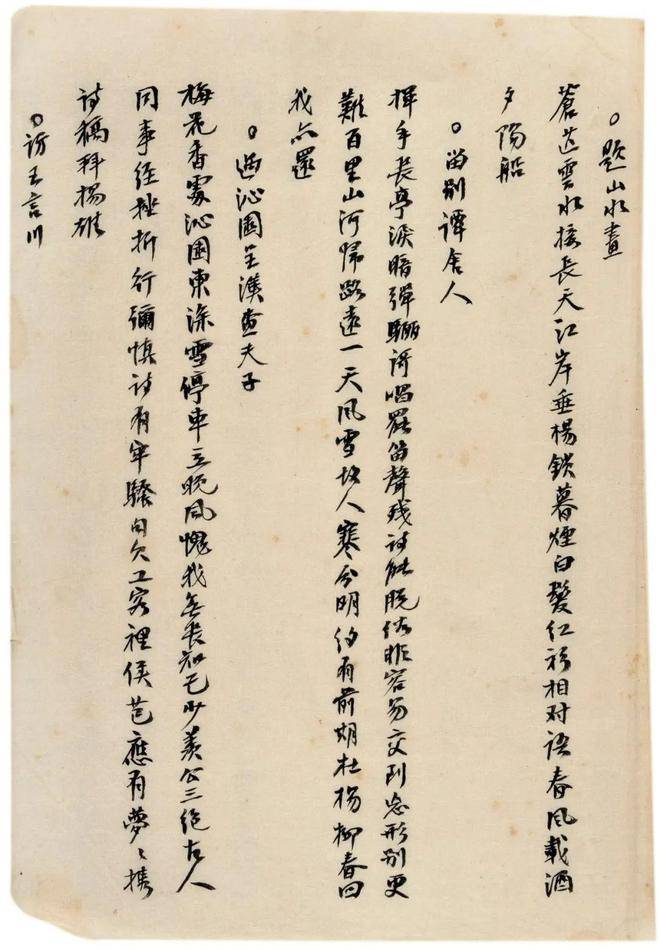 ○題山水畫
蒼茫雲水接長天江岸垂楊鎖暮煙白髮紅衫相对語春風載酒
夕陽船
○留別譚舍人
揮手長亭淚暗彈驪謌唱罷笛聲殘詩能脫俗非容易交到忘形別更
難百里山河歸路遠一天風雪故人寒分明約有前期在楊柳春回
我亦還
○過沁園呈漢查夫子
梅花香裏沁園東深雪停車立晚風愧我無長知己少羨公三絕古人
同事經挫折行彌慎詩有牢騷句欠工客裡侯芭應有夢〻攜
詩稿拜揚雄
○訪王言川